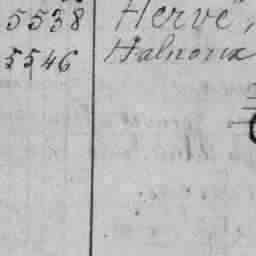 5538 Hervé,
5546 Halnoux